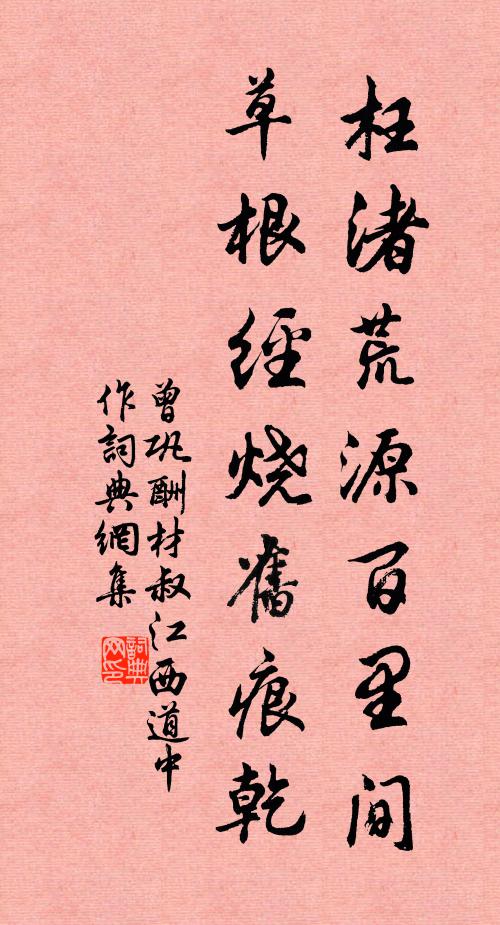 枉渚荒源百里间
草根經烧舊痕乾
曾巩酬材叔江西道中
作詞典網集
詞典网印